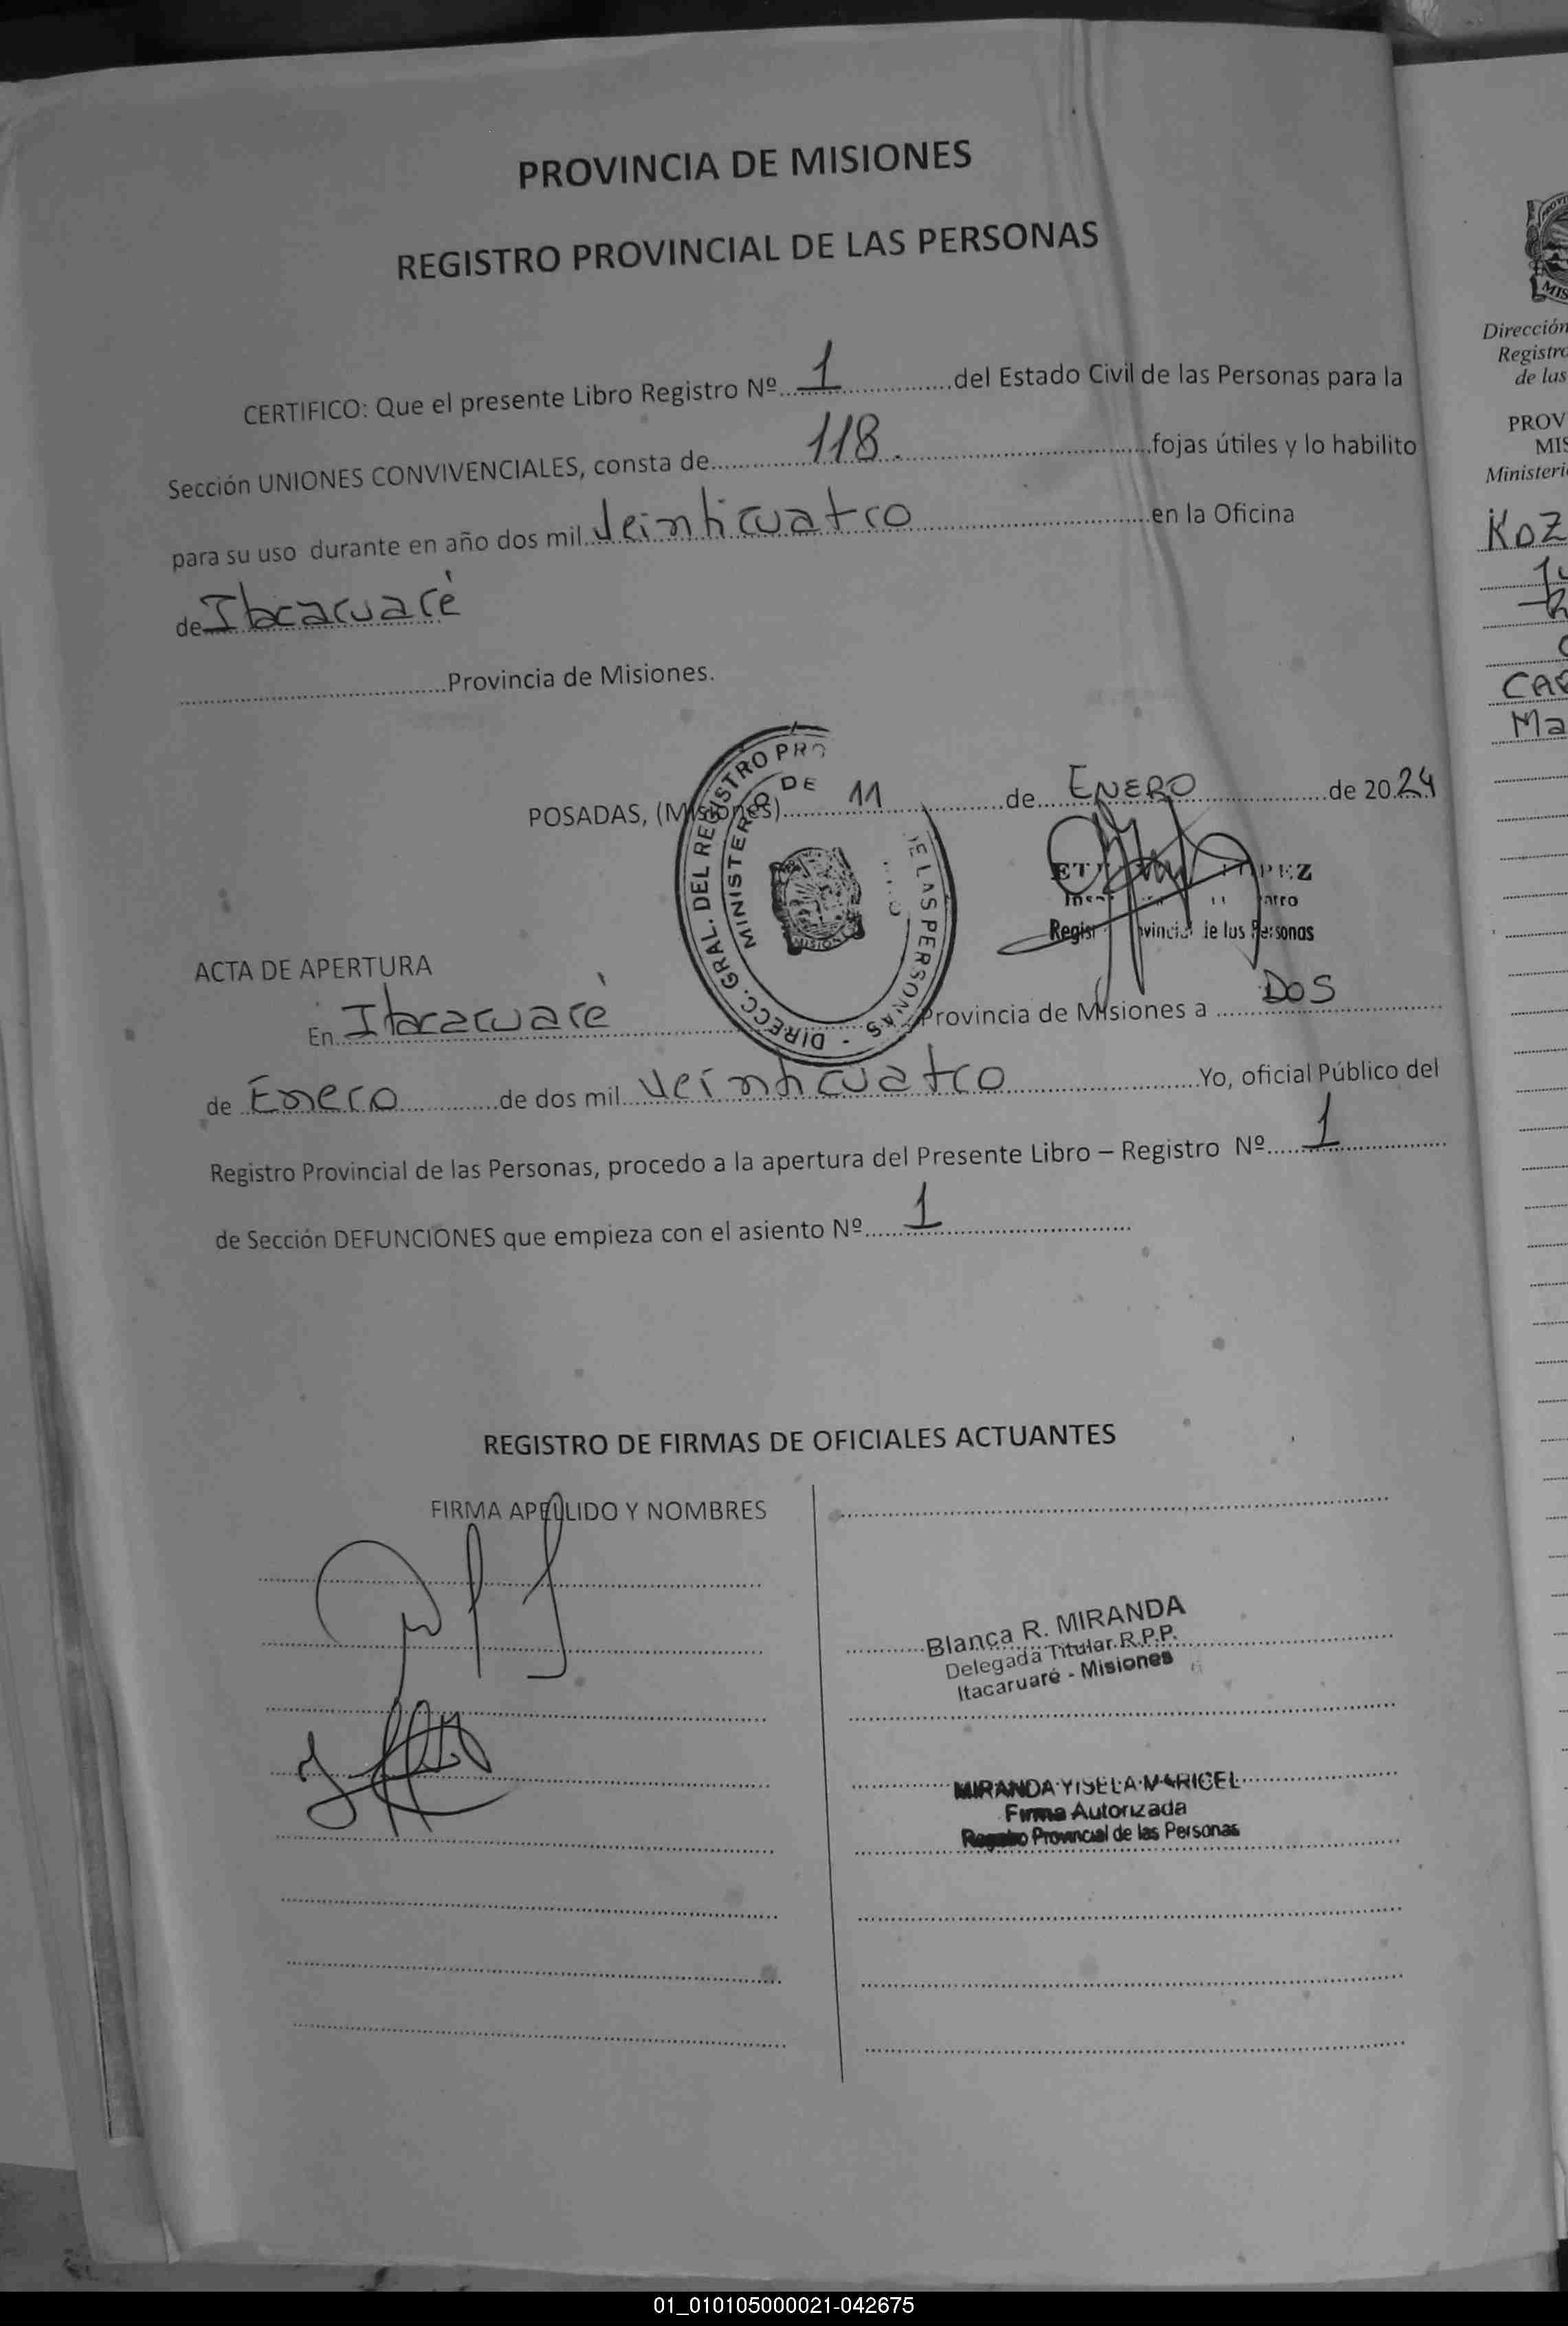 PROVINCIA DE MISIONES
REGISTRO PROVINCIAL DE LAS PERSONAS
CERTIFICO: Que el presente Libro Registro Nº 1 del Estado Civil de las Personas para la
Sección UNIONES CONVIVENCIALES, consta de 118. fojas útiles y lo habilito
para su uso durante en año dos mil Veinticuatro en la Oficina
de Itacaruaré
Provincia de Misiones.
POSADAS, (Misiones) 11 de ENERO de 2024
DIRECC. GRAL. DEL REGISTRO PRO DE LAS PERSONAS
MINISTERIO DE
MISIONES
PEZ
Regis vincial de las Personas
ACTA DE APERTURA
En Itacaruaré Provincia de Misiones a DOS
de Enero de dos mil Veinticuatro Yo, oficial Público del
Registro Provincial de las Personas, procedo a la apertura del Presente Libro – Registro Nº 1
de Sección DEFUNCIONES que empieza con el asiento Nº 1
REGISTRO DE FIRMAS DE OFICIALES ACTUANTES
FIRMA APELLIDO Y NOMBRES
Blanca R. MIRANDA
Delegada Titular R.P.P.
Itacaruaré - Misiones
MIRANDA YISELA MARICEL
Firma Autorizada
Registro Provincial de las Personas
Dirección
Registro
de las
PROV
MIS
Ministeri
KOZ
CAR
Ma
01_010105000021-042675